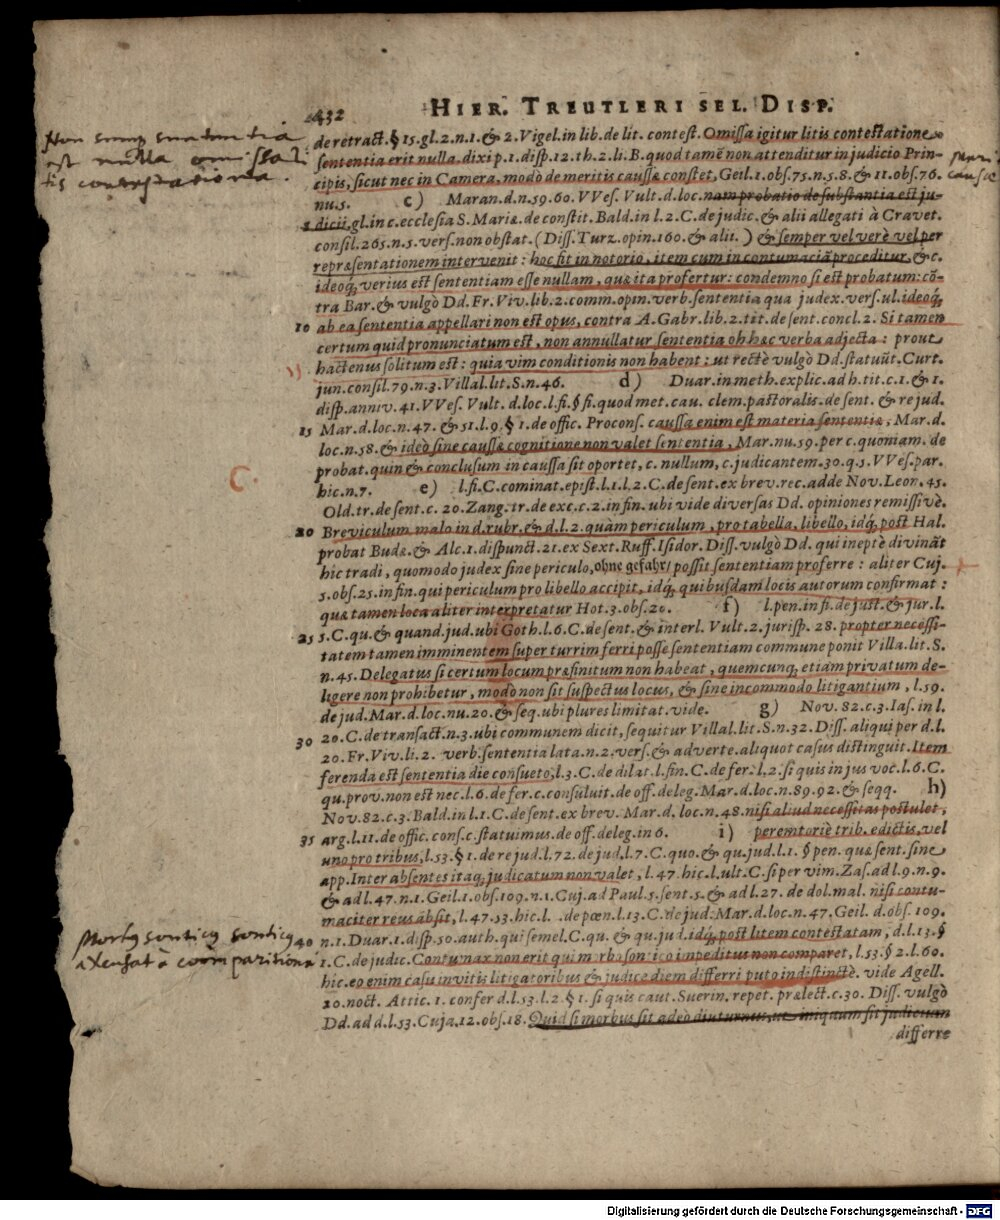 432 HIER. TREUTLERI SEL. DISP.
de retract. § 15. gl. 2. n. 1. & 2. Vigel. in lib. de lit. contest. Omissa igitur litis contestatione
sententia erit nulla. dixi p. 1. disp. 12. th. 2. li. B. quod tamē non attenditur in judicio Prin-
cipis, sicut nec in Camera, modò de meritis caussæ constet, Geil. 1. obs. 75. n. 5. 8. & 11. obs. 76.
nu. 5. c) Maran. d. n. 59. 60. VVes. Vult. d. loc. nam probatio de substantia est ju-
5 dicii, gl. in c. ecclesia S. Mariæ. de constit. Bald. in l. 2. C. de judic. & alii allegati à Cravet.
consil. 265. n. 5. vers. non obstat. (Diss. Turz. opin. 160. & alii.) & semper vel verè vel per
repræsentationem intervenit: hoc fit in notorio, item cum in contumaciā proceditur, & c.
ideoq́, verius est sententiam esse nullam, quæ ita profertur: condemno si est probatum: cō-
tra Bar. & vulgò Dd. Fr. Viv. lib. 2. comm. opin. verb. sententia qua judex. vers. ul. ideoq́,
10 ab ea sententia appellari non est opus, contra A. Gabr. lib. 2. tit. de sent. concl. 2. Si tamen
certum quid pronunciatum est, non annullatur sententia ob hæc verba adjecta: prout
hactenus solitum est: quia vim conditionis non habent: ut rectè vulgò Dd. statuūt. Curt.
jun. consil. 79. n. 3. Villal. lit. S. n. 46. d) Duar. in meth. explic. ad h. tit. c. 1. & 1.
disp. anniv. 41. VVes. Vult. d. loc. l. fi. § fi. quod met. cau. clem. pastoralis. de sent. & re jud.
15 Mar. d. loc. n. 47. & 51. l. 9. § 1. de offic. Procons. caussa enim est materia sententiæ, Mar. d.
loc. n. 58. & ideò sine caussæ cognitione non valet sententia, Mar. nu. 59. per c. quoniam. de
probat. quin & conclusum in caussa sit oportet, c. nullum, c. judicantem. 30. q. 5. VVes. par.
hic. n. 7. e) l. fi. C. cominat. epist. l. 1. l. 2. C. de sent. ex brev. rec. adde Nov. Leon. 45.
Old. tr. de sent. c. 20. Zang. tr. de exc. c. 2. in fin. ubi vide diversas Dd. opiniones remissivè.
20 Breviculum malo in d. rubr. & d. l. 2. quàm periculum, pro tabella, libello, idq́, post Hal.
probat Budæ. & Alc. 1. dispunct. 21. ex Sext. Ruff. Isidor. Diss. vulgò Dd. qui ineptè divināt
hic tradi, quomodo judex sine periculo, ohne gefahr/ possit sententiam proferre: aliter Cuj.
5. obs. 25. in fin. qui periculum pro libello accipit, idq́, quibusdam locis autorum confirmat:
quæ tamen loca aliter interpretatur Hot. 3. obs. 20. f) l. pen. in fi. de just. & jur. l.
25 5. C. qu. & quand. jud. ubi Goth. l. 6. C. de sent. & interl. Vult. 2. jurisp. 28. propter necessi-
tatem tamen imminentem super turrim ferri posse sententiam commune ponit Villa. lit. S.
n. 45. Delegatus si certum locum præfinitum non habeat, quemcunq́, etiam privatum de-
ligere non prohibetur, modò non sit suspectus locus, & sine incommodo litigantium, l. 59.
de jud. Mar. d. loc. nu. 20. & seq. ubi plures limitat. vide. g) Nov. 82. c. 3. Ias. in l.
30 20. C. de transact. n. 3. ubi communem dicit, sequitur Villal. lit. S. n. 32. Diss. aliqui per d. l.
20. Fr. Viv. li. 2. verb. sententia lata. n. 2. vers. & adverte. aliquot casus distinguit. Item
ferenda est sententia die consueto, l. 3. C. de dilat. l. fin. C. de fer. l. 2. si quis in jus voc. l. 6. C.
qu. prov. non est nec. l. 6. de fer. c. consuluit. de off. deleg. Mar. d. loc. n. 89. 92. & seqq. h)
Nov. 82. c. 3. Bald. in l. 1. C. de sent. ex brev. Mar. d. loc. n. 48. nisi aliud necessitas postulet,
35 arg. l. 11. de offic. cons. c. statuimus. de off. deleg. in 6. i) peremtoriè trib. edictis, vel
uno pro tribus, l. 53. § 1. de re jud. l. 72. de jud. l. 7. C. quo. & qu. jud. l. 1. § pen. quæ sent. sine
app. Inter absentes itaq́, judicatum non valet, l. 47. hic. l. ult. C. si per vim. Zas. ad l. 9. n. 9.
& ad l. 47. n. 1. Geil. 1. obs. 109. n. 1. Cuj. ad Paul. 5. sent. 5. & ad l. 27. de dol. mal. nisi contu-
maciter reus absit, l. 47. 53. hic. l. de pœn. l. 13. C. de jud. Mar. d. loc. n. 47. Geil. d. obs. 109.
40 n. 1. Duar. 1. disp. 50. auth. qui semel. C. qu. & qu. jud. idq́, post litem contestatam, d. l. 13. §
1. C. de judic. Contumax non erit qui morbo sontico impeditus non comparet, l. 53. § 2. l. 60.
hic. eo enim casu invitis litigatoribus & judice diem differri puto indistinctè. vide Agell.
20. noct. Attic. 1. confer d. l. 53. l. 2. § 1. si quis caut. Suerin. repet. prælect. c. 30. Diss. vulgò
Dd. ad d. l. 53. Cuja. 12. obs. 18. Quid si morbus sit adeò diuturnus, ut iniquum sit judicium
differre
est nulla omissa li
tis contestationa.
causæ
C.
Morbus sonticus
excusat à comparitiona
Digitalisierung gefördert durch die Deutsche Forschungsgemeinschaft - DFG